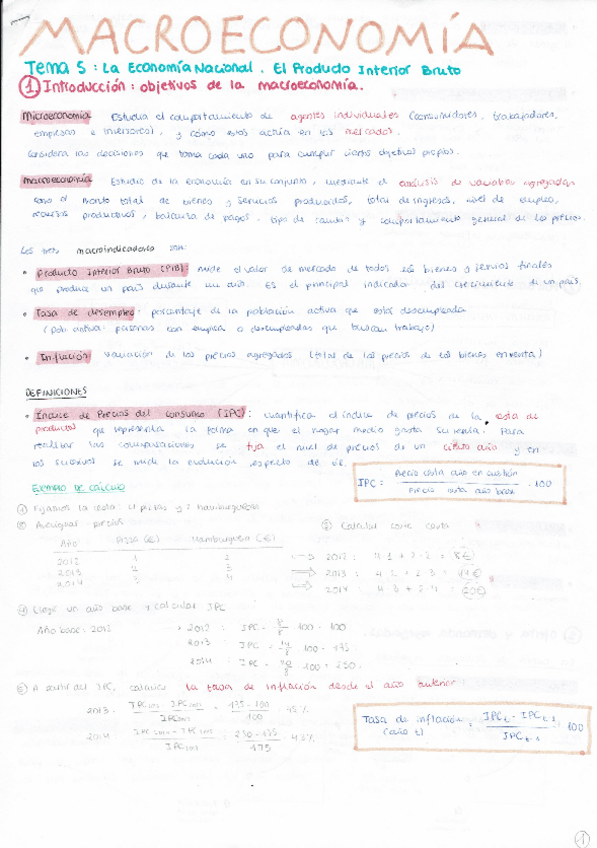 MACROECONOMÍA
Tema 5: La Economía Nacional. El Producto Interior Bruto
① Introducción: objetivos de la macroeconomía.
Microeconomía Estudia el comportamiento de agentes individuales (consumidores, trabajadores,
empresas e inversores), y cómo estos actúa en los mercados.
Considera las decisiones que toma cada uno para cumplir ciertos objetivos propios.
Macroeconomía Estudio de la economía en su conjunto, mediante el análisis de variables agregadas
como el monto total de bienes y servicios producidos, total de ingresos, nivel de empleo,
recursos productivos, balanza de pagos, tipo de cambio y comportamiento general de los precios.
Los tres macroindicadores son:
• Producto Interior Bruto (PIB): mide el valor de mercado de todos los bienes y servicios finales
que produce un país durante un año. Es el principal indicador del crecimiento de un país
• Tasa de desempleo: porcentaje de la población activa que está desempleada
(pob. activa: personas con empleo o desempleadas que buscan trabajo)
• Inflación variación de los precios agregados (total de los precios de los bienes en venta)
DEFINICIONES
• Índice de Precios del Consumo (IPC): cuantifica el índice de precios de la cesta de
productos que representa la forma en que el hogar medio gasta su renta. Para
realizar las comparaciones se fija el nivel de precios de un cierto año y en
los sucesivos se mide la evolución respecto de
IPC = Precio cesta año en cuestión / Precio cesta año base · 100
EJEMPLO DE CÁLCULO
① Fijamos la cesta: 4 pizzas y 2 hamburguesas
② Averiguar precios
Año Pizza (€) Hamburguesa (€)
2012 1 2
2013 2 3
2014 3 4
③ Calcular coste cesta
2012: 4·1 + 2·2 = 8€
2013: 4·2 + 2·3 = 14€
2014: 4·3 + 2·4 = 20€
④ Elegir un año base y calcular IPC
Año base: 2012 → 2012: IPC = 8/8 · 100 = 100
2013: IPC = 14/8 · 100 = 175
2014: IPC = 20/8 · 100 = 250
⑤ A partir del IPC, calcular la tasa de inflación desde el año anterior
2013: 175 - 100 / 100
2014: 250 - 175 / 175
Tasa de inflación (año t) = IPCt - IPCt-1 / IPCt-1 · 100
1